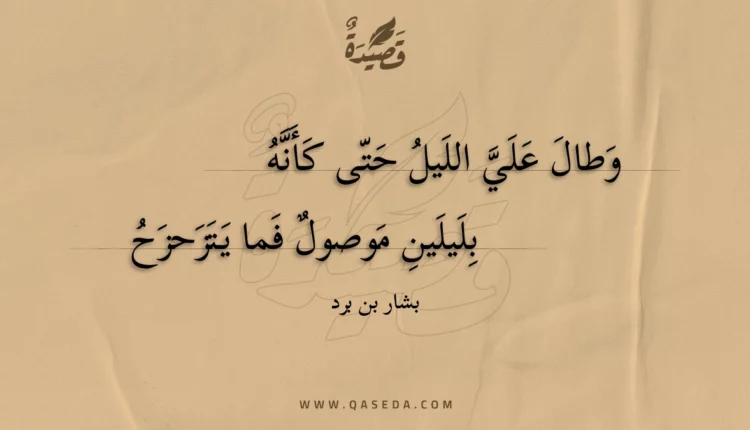 قَصِيدَةٌ
وَطالَ عَلَيَّ اللَيلُ حَتّى كَأَنَّهُ
بِلَيلَينِ مَوصولٌ فَما يَتَرَحزَحُ
بشار بن برد
WWW.QASEDA.COM